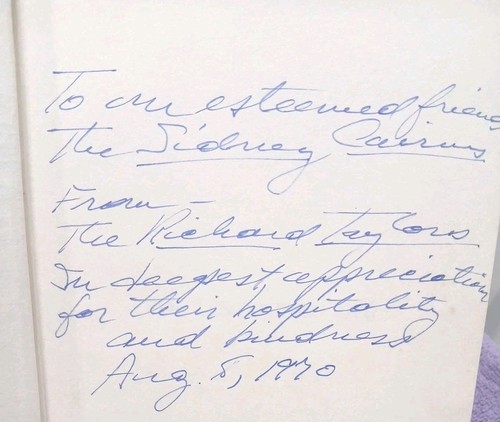 To an esteemed friend
The Sidney Cairns
From —
The Richard Taylors
In deepest appreciation
for their hospitality
and kindness
Aug. 5, 1970